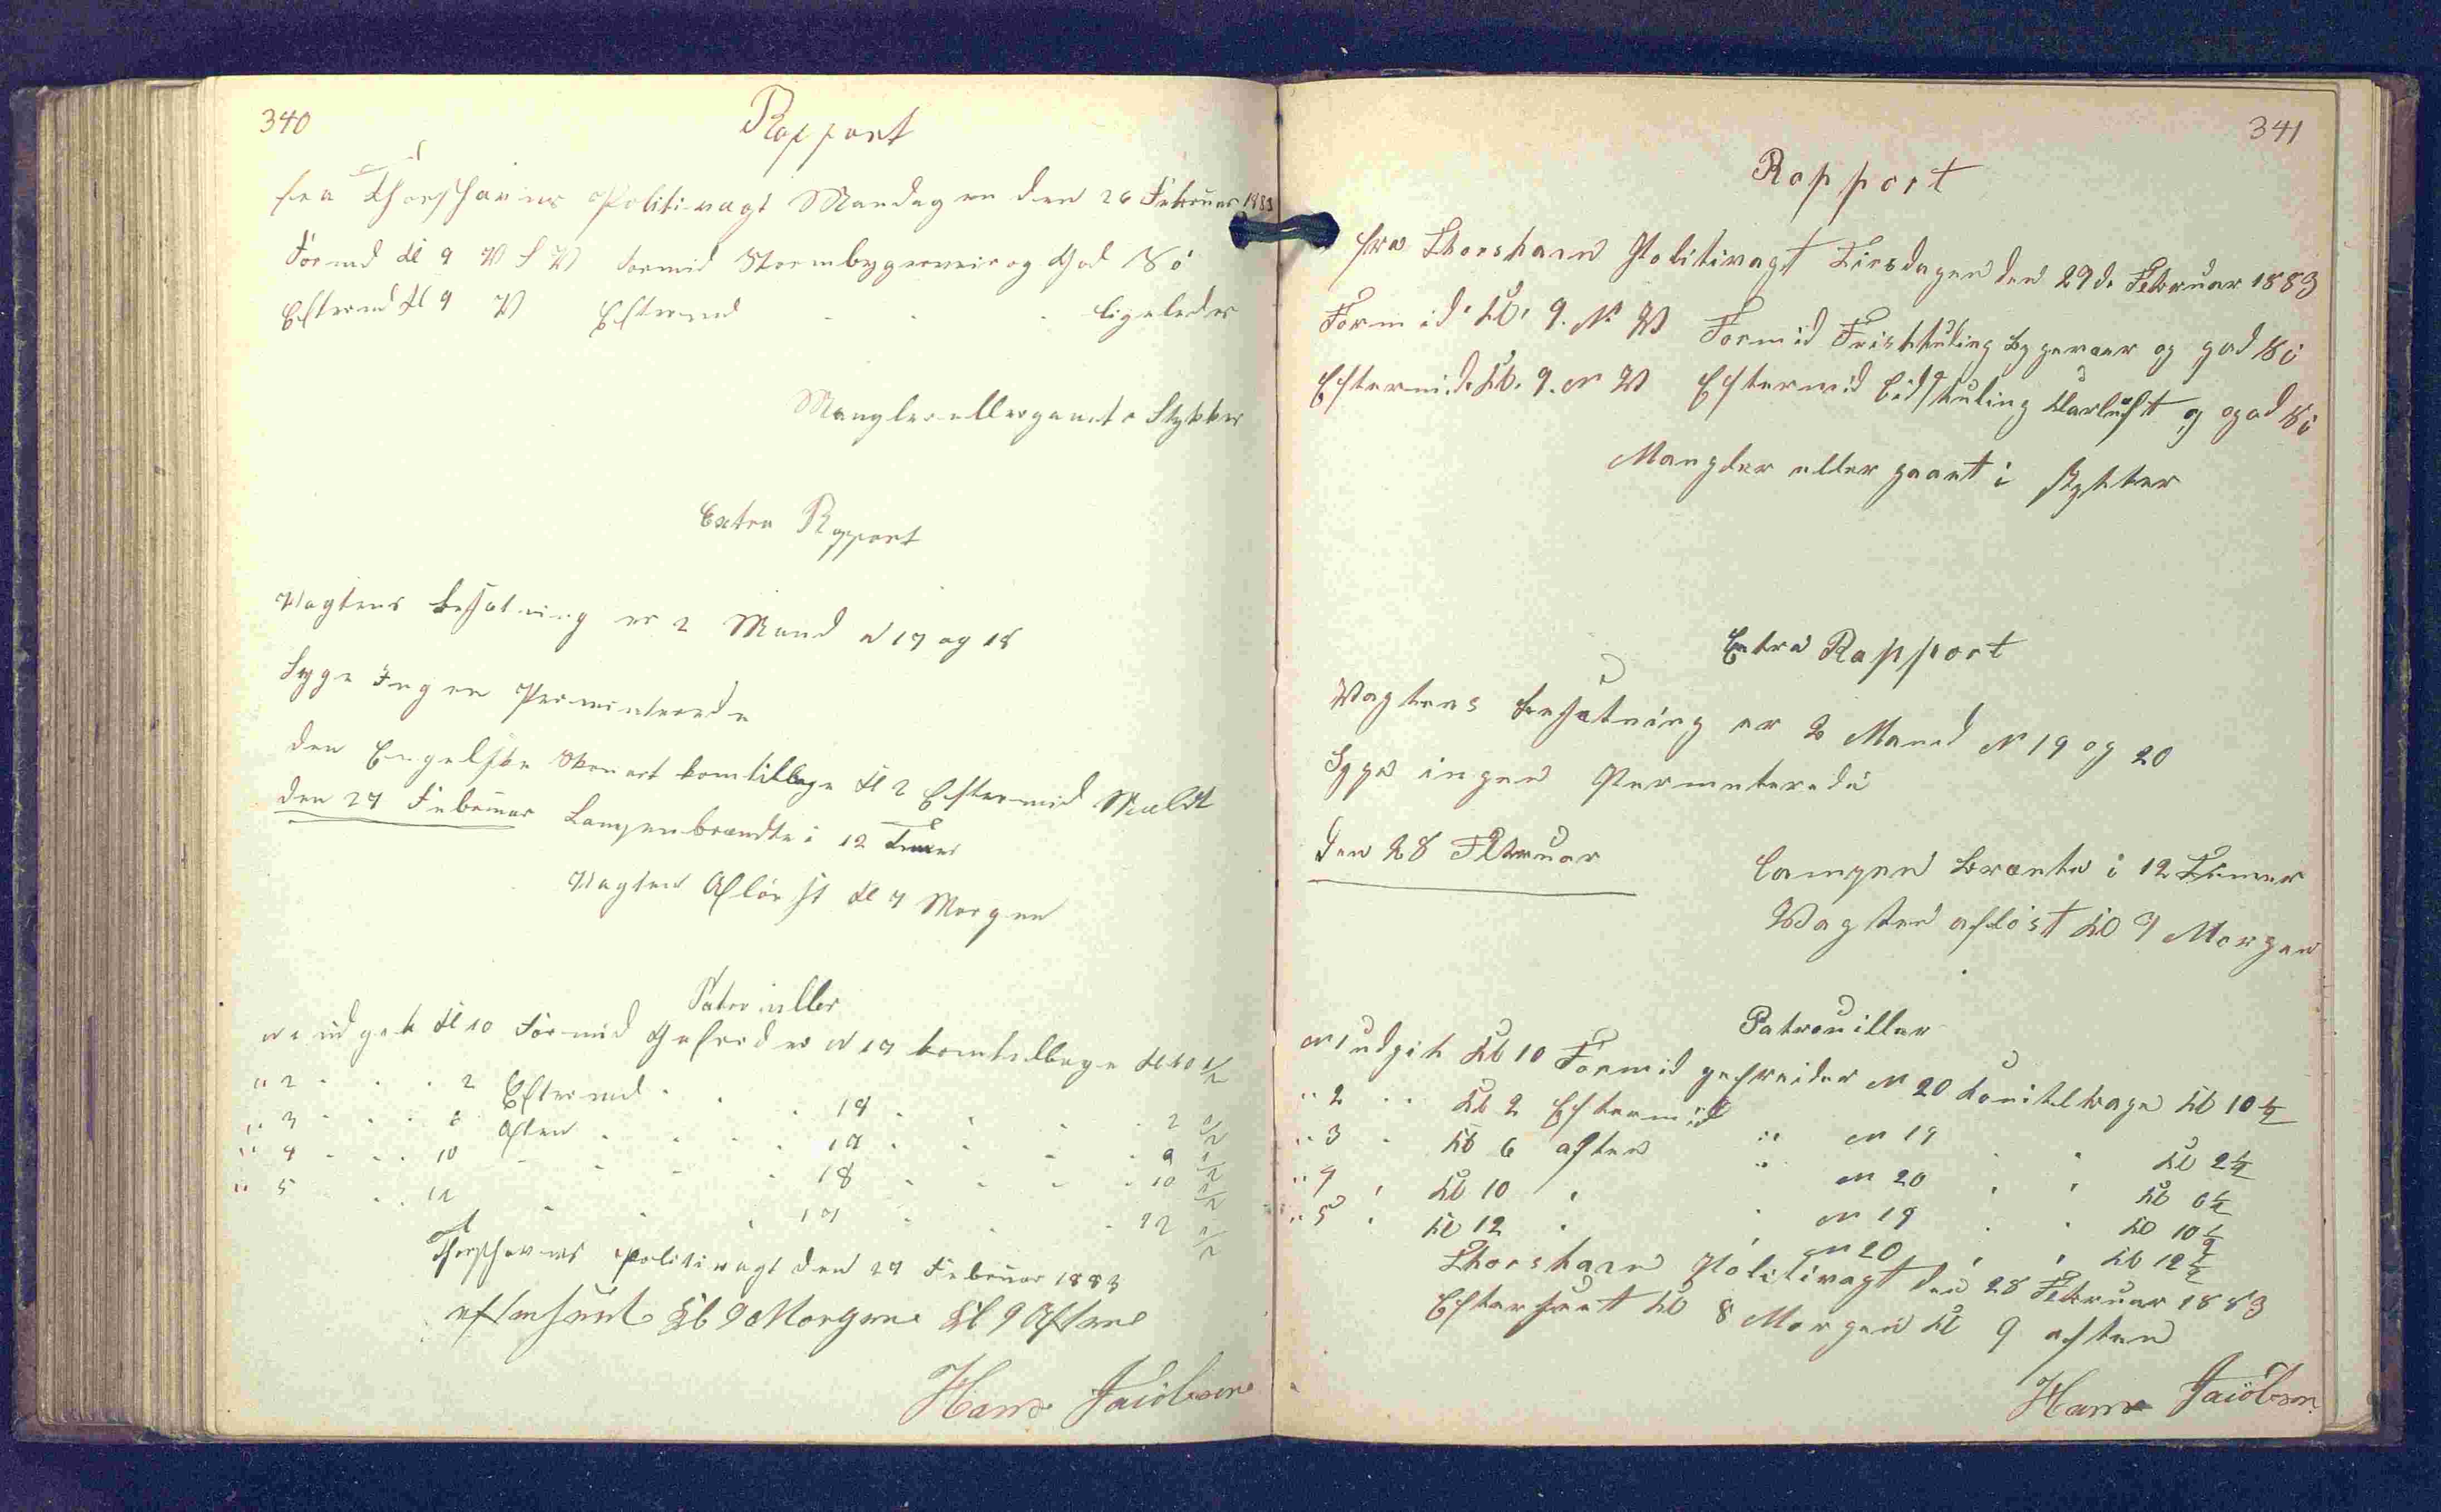 340
Rapport
fra Thorshavns Politivagt Mandagen den 26 Februar 1883
Formd Kl 9 V S V Formid Stormbygerveir og God Sö
Eftermd Kl 9 V Eftermd - - - ligeledes
Mangler eller gaaet i Stykker
Extra Rapport
Vagtens besætning er 2 Mand N 17 og 18
Syge Ingen Permenterede
den Engelske Skonert kom tilbage Kl 2 Eftermid
den 27 Februar Lampen brændte i 12 Timer
Vagten Afløst Kl 9 Morgen
Patrouller
N 1 udgik Kl 10 Formid Gefreider N 17 kom tilbage Kl 10 1/2
" 2 - - - 2 Eftermd - - - 18 - - - 2 1/2
" 3 - - - 6 Aften - - - 17 - - - 6 1/2
" 4 - - - 10 - - - 18 - - - 10 1/2
" 5 - - 12 - - - 17 - - - 12 1/2
Thorshavns Politivagt den 27 Februar 1883
efterseet Kl 9 Morgen Kl 9 Aften
Hans Jacobsen
341
Rapport
fra Thorshavn Politivagt Tirsdagen den 27de Februar 1883
Formid Kl. 9. N V Formid Friskkuling Bygevær og god Sö
Eftermid. Kl. 9. N V Eftermid lidkuling klarluft og god Sö
Mangler eller gaaet i stykker
Extra Rapport
Vagtens besætning er 2 Mand N 19 og 20
Syge ingen Permenterede
Den 28 Februar Lampen brænte i 12 Timer
Vagten afløst Kl 9 Morgen
Patrouiller
N 1 udgik Kl 10 Formid gefreider N 20 komtilbage Kl 10 1/2
" 2 - - Kl 2 Eftermid " N 19 - - Kl 2 1/2
" 3 - Kl 6 aften " N 20 - - Kl 6 1/2
" 4 - Kl 10 - - N 19 - - Kl 10 1/2
" 5 - Kl 12 - - N 20 - - Kl 12 1/2
Thorshavn Politivagt den 28 Februar 1883
Efterseet Kl 8 Morgen Kl 9 aften
Hans Jacobsen